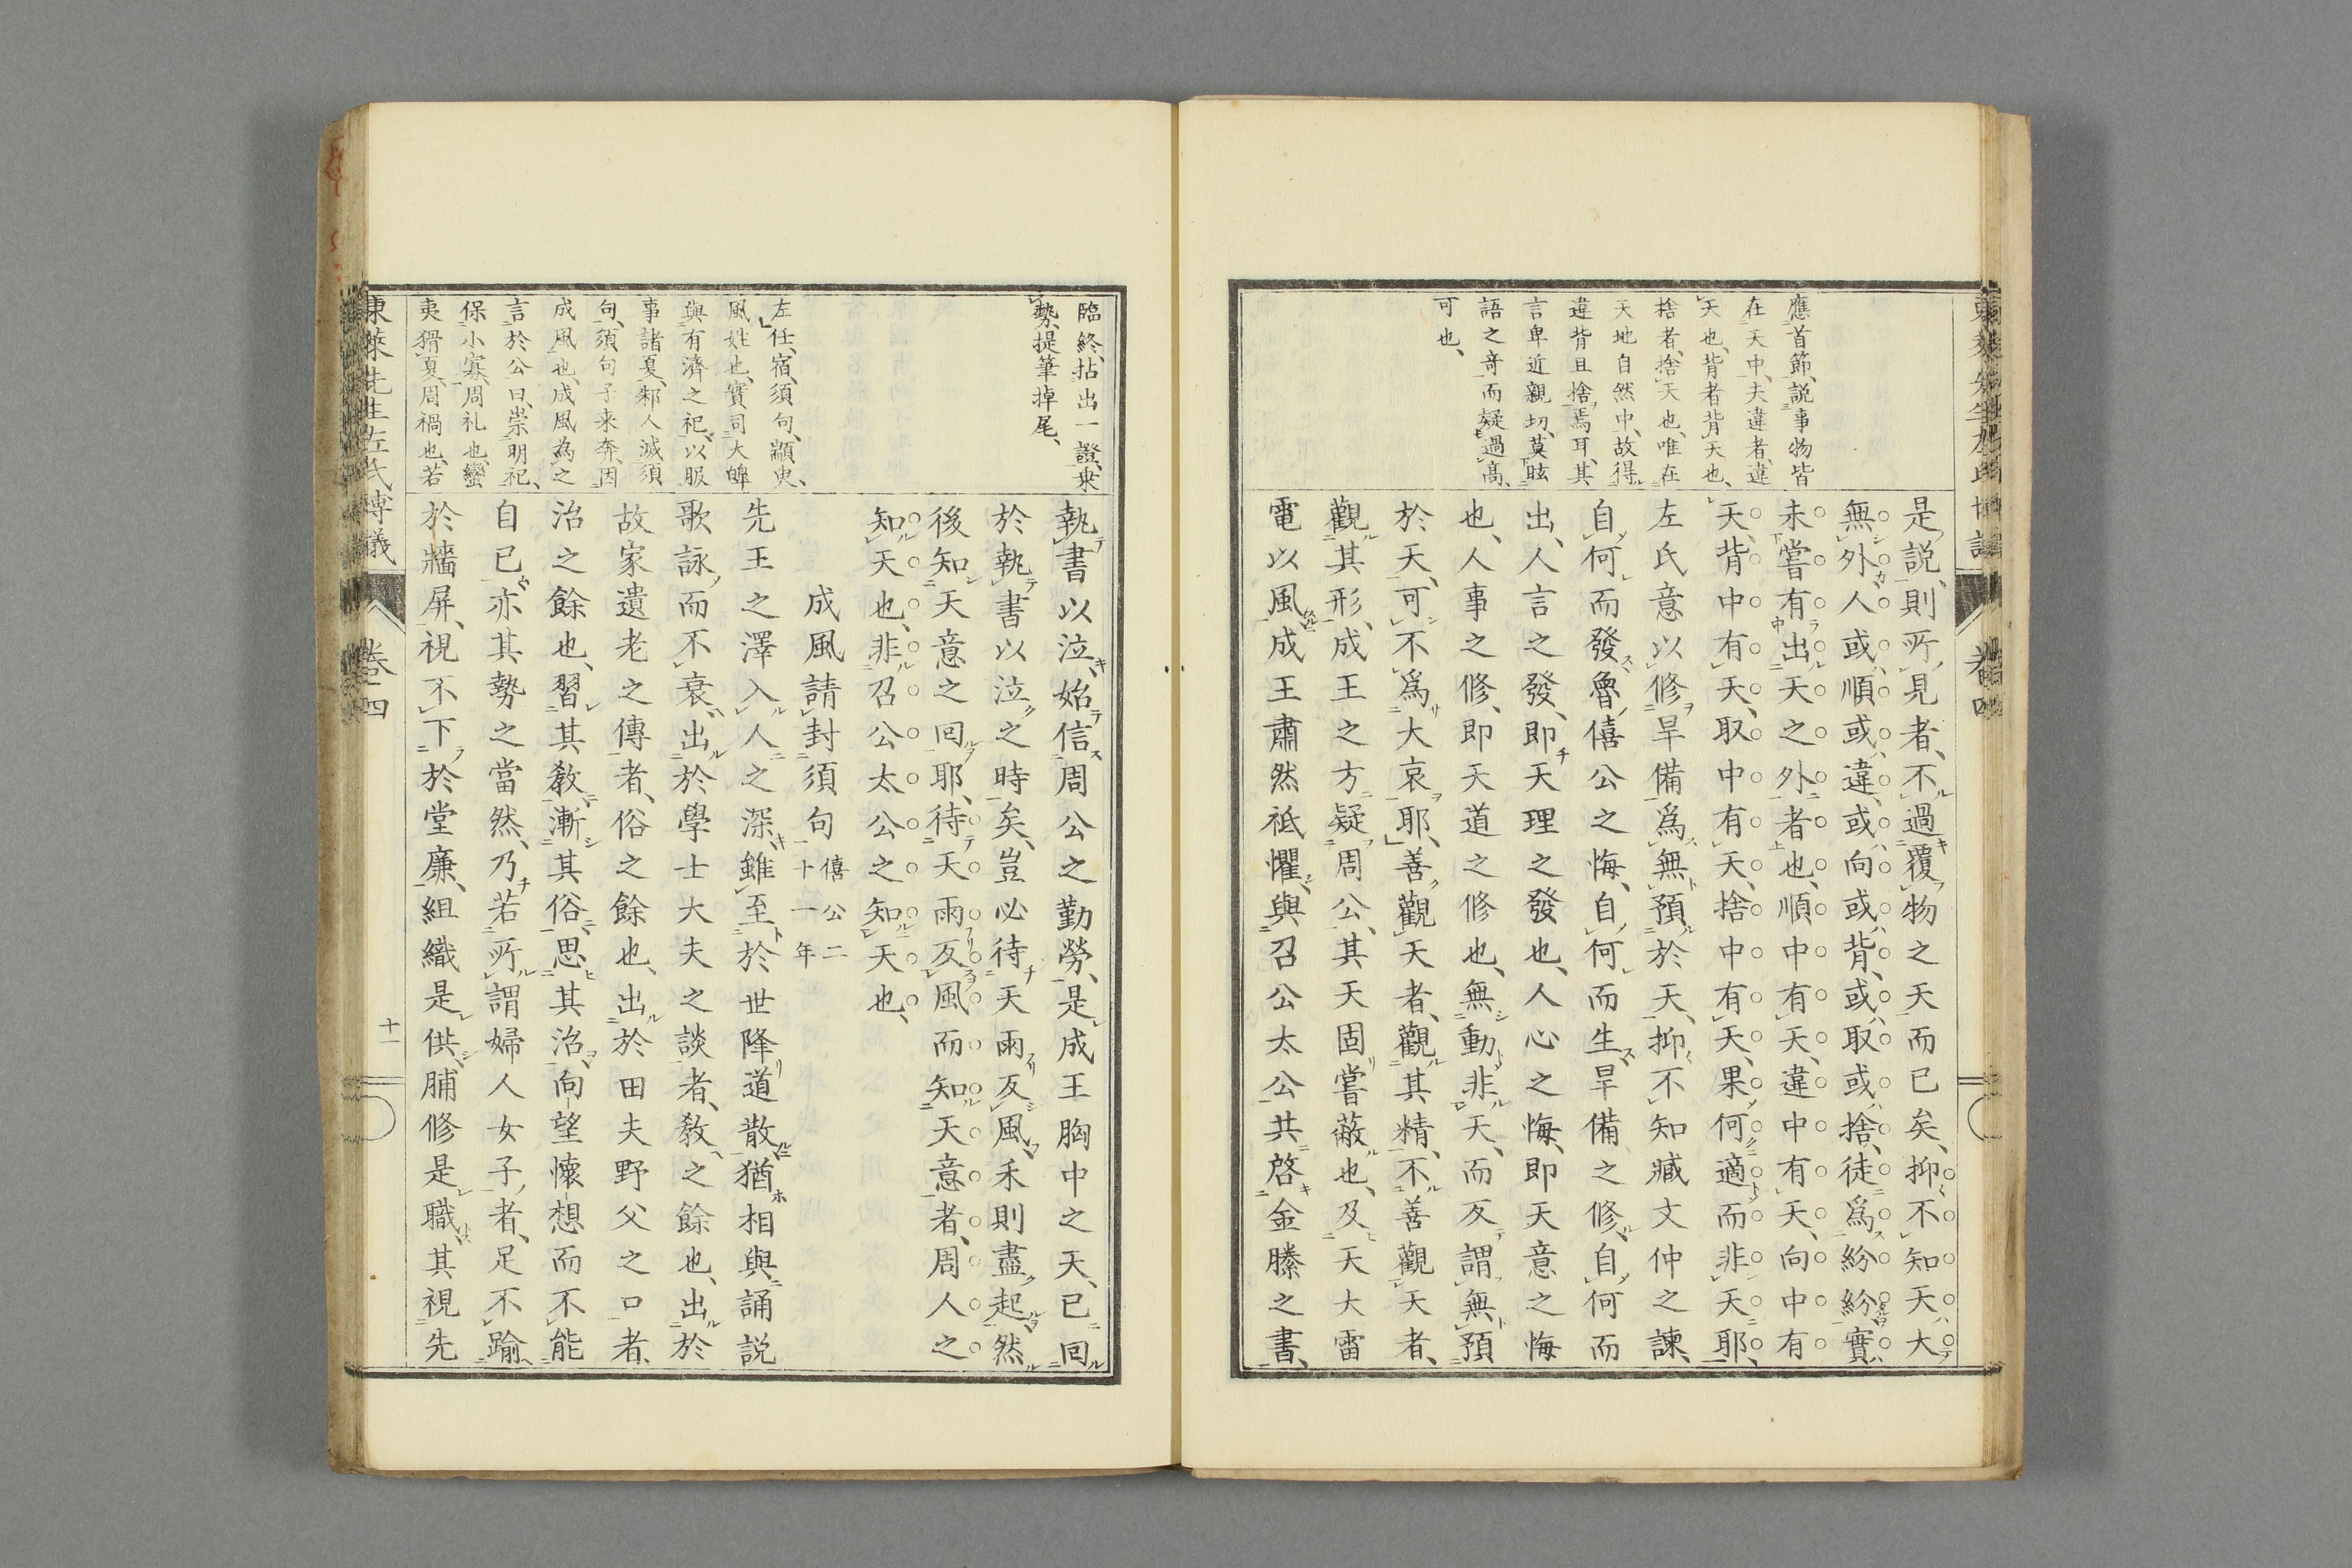 應首節、説事物皆
在天中、夫違者、違
天也、背者背天也、
捨者、捨天也、唯在
天地自然中、故得
違背且捨焉耳、其
言卑近親切、莫眩
語之奇而疑過高、
可也、
是説、則所見者、不過覆物之天而已矣、抑不知天大
無外、人或順或違、或向或背、或取或捨、徒爲紛紛、實
未嘗有出天之外者也、順中有天、違中有天、向中有
天、背中有天、取中有天、捨中有天、果何適而非天耶、
左氏意以修旱備爲無預於天、抑不知臧文仲之諫、
自何而發、魯僖公之悔、自何而生、旱備之修、自何而
出、人言之發、即天理之發也、人心之悔、即天意之悔
也、人事之修、即天道之修也、無動非天、而反謂無預
於天、可不爲大哀耶、善觀天者、觀其精、不善觀天者、
觀其形、成王之方疑周公、其天固嘗蔽也、及天大雷
電以風、成王肅然祗懼、與召公太公共啓金縢之書、
臨終、拈出一證、乗
勢、提筆掉尾、
左、任、宿、須句、顓臾、
風姓也、實司大皥
與有濟之祀、以服
事諸夏、邾人滅須
句、須句子来奔、因
成風也、成風為之
言於公曰、崇明祀、
保小寡、周礼也、蠻
夷猾夏、周禍也、若
執書以泣、始信周公之勤勞、是成王胸中之天、已回
於執書以泣之時矣、豈必待天雨反風、禾則盡起、然
後知天意之回耶、待天雨反風而知天意者、周人之
知天也、非召公太公之知天也、
成風請封須句 僖公二十一年
先王之澤入人之深、雖至於世降道散、猶相與誦説
歌詠而不衰、出於學士大夫之談者、教之餘也、出於
故家遺老之傳者、俗之餘也、出於田夫野父之口者、
治之餘也、習其教、漸其俗、思其治、向望懷想而不能
自已、亦其勢之當然、乃若所謂婦人女子者、足不踰
於牆屏、視不下於堂廉、組織是供、脯修是職、其視先
東萊先生左氏博議
卷四
十一